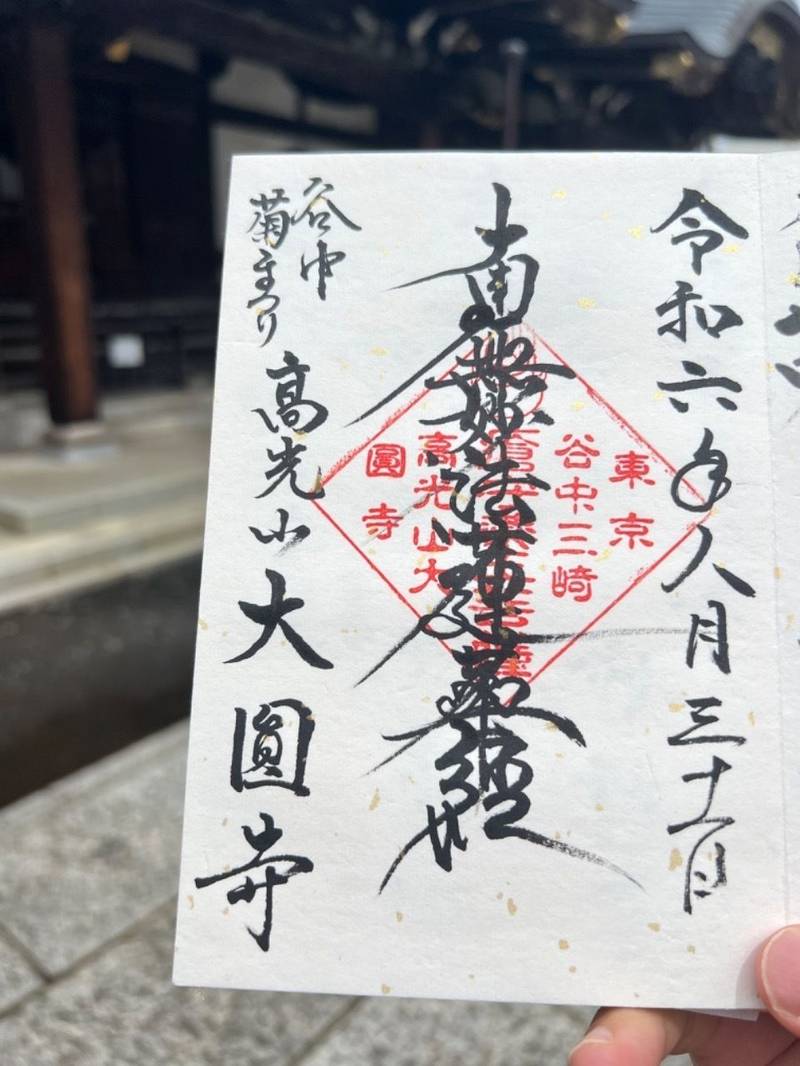 令和六年八月三十一日
南無妙法蓮華経
谷中
菊まつり
高光山 大圓寺
東京
谷中三崎
高光山大
圓寺